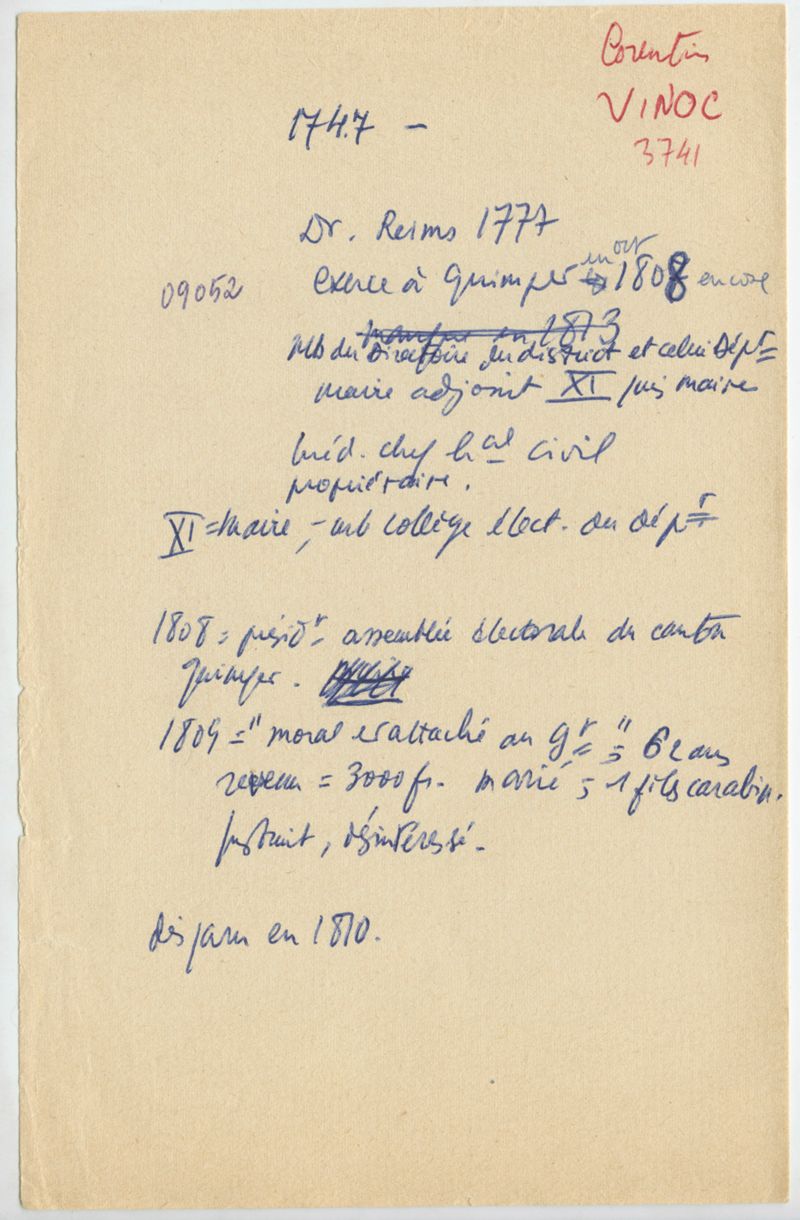 Corentin
VINOC
3741
1747 –
Dr. Reims 1777
en oct
09052 exerce à Quimper 1808 encore
manque en 1813
mb du Directoire du district et celui Dépt
maire adjoint XI puis maire
Méd. chef hal civil
propriétaire.
XI = Maire, – mb collège élect. du dépt
1808 = présidt assemblée électorale du canton
Quimper.
1809 = " moral et attaché au gt " = 62 ans
revenu = 3000 fr. marié = 1 fils carabin.
Instruit, désintéressé.
disparu en 1810.